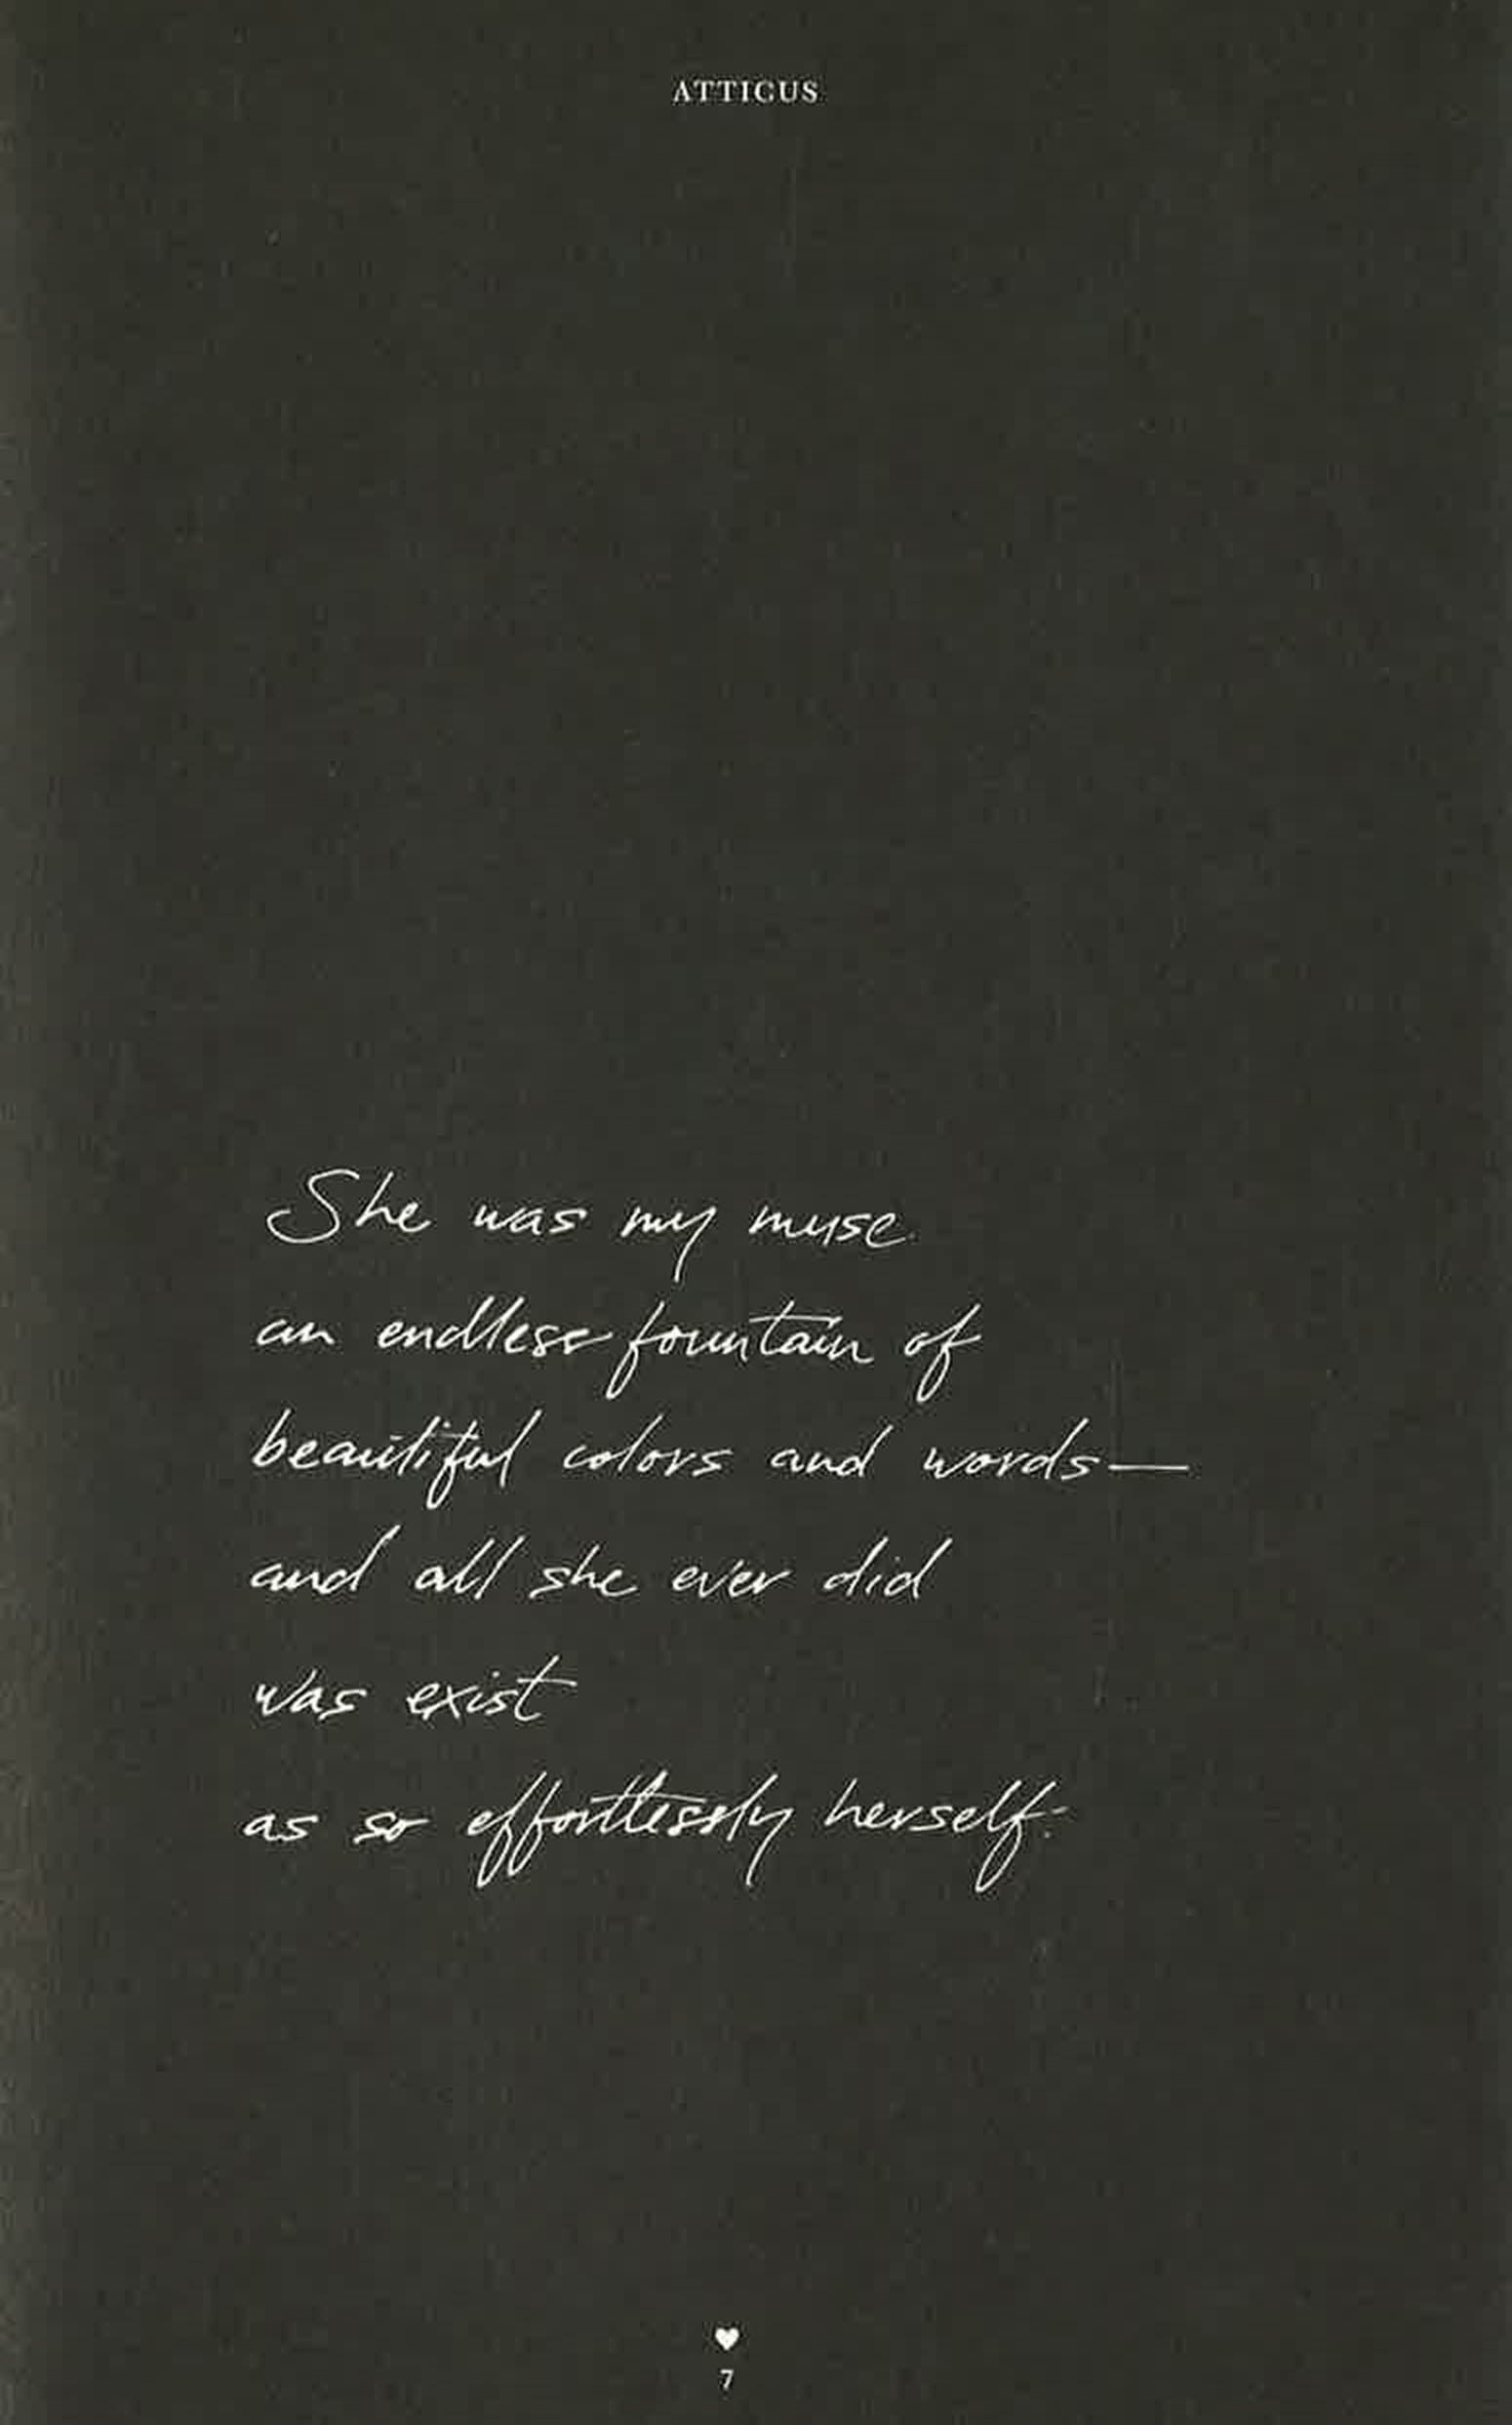 ATTICUS
She was my muse.
an endless fountain of
beautiful colors and words—
and all she ever did
was exist
as so effortlessly herself.
7